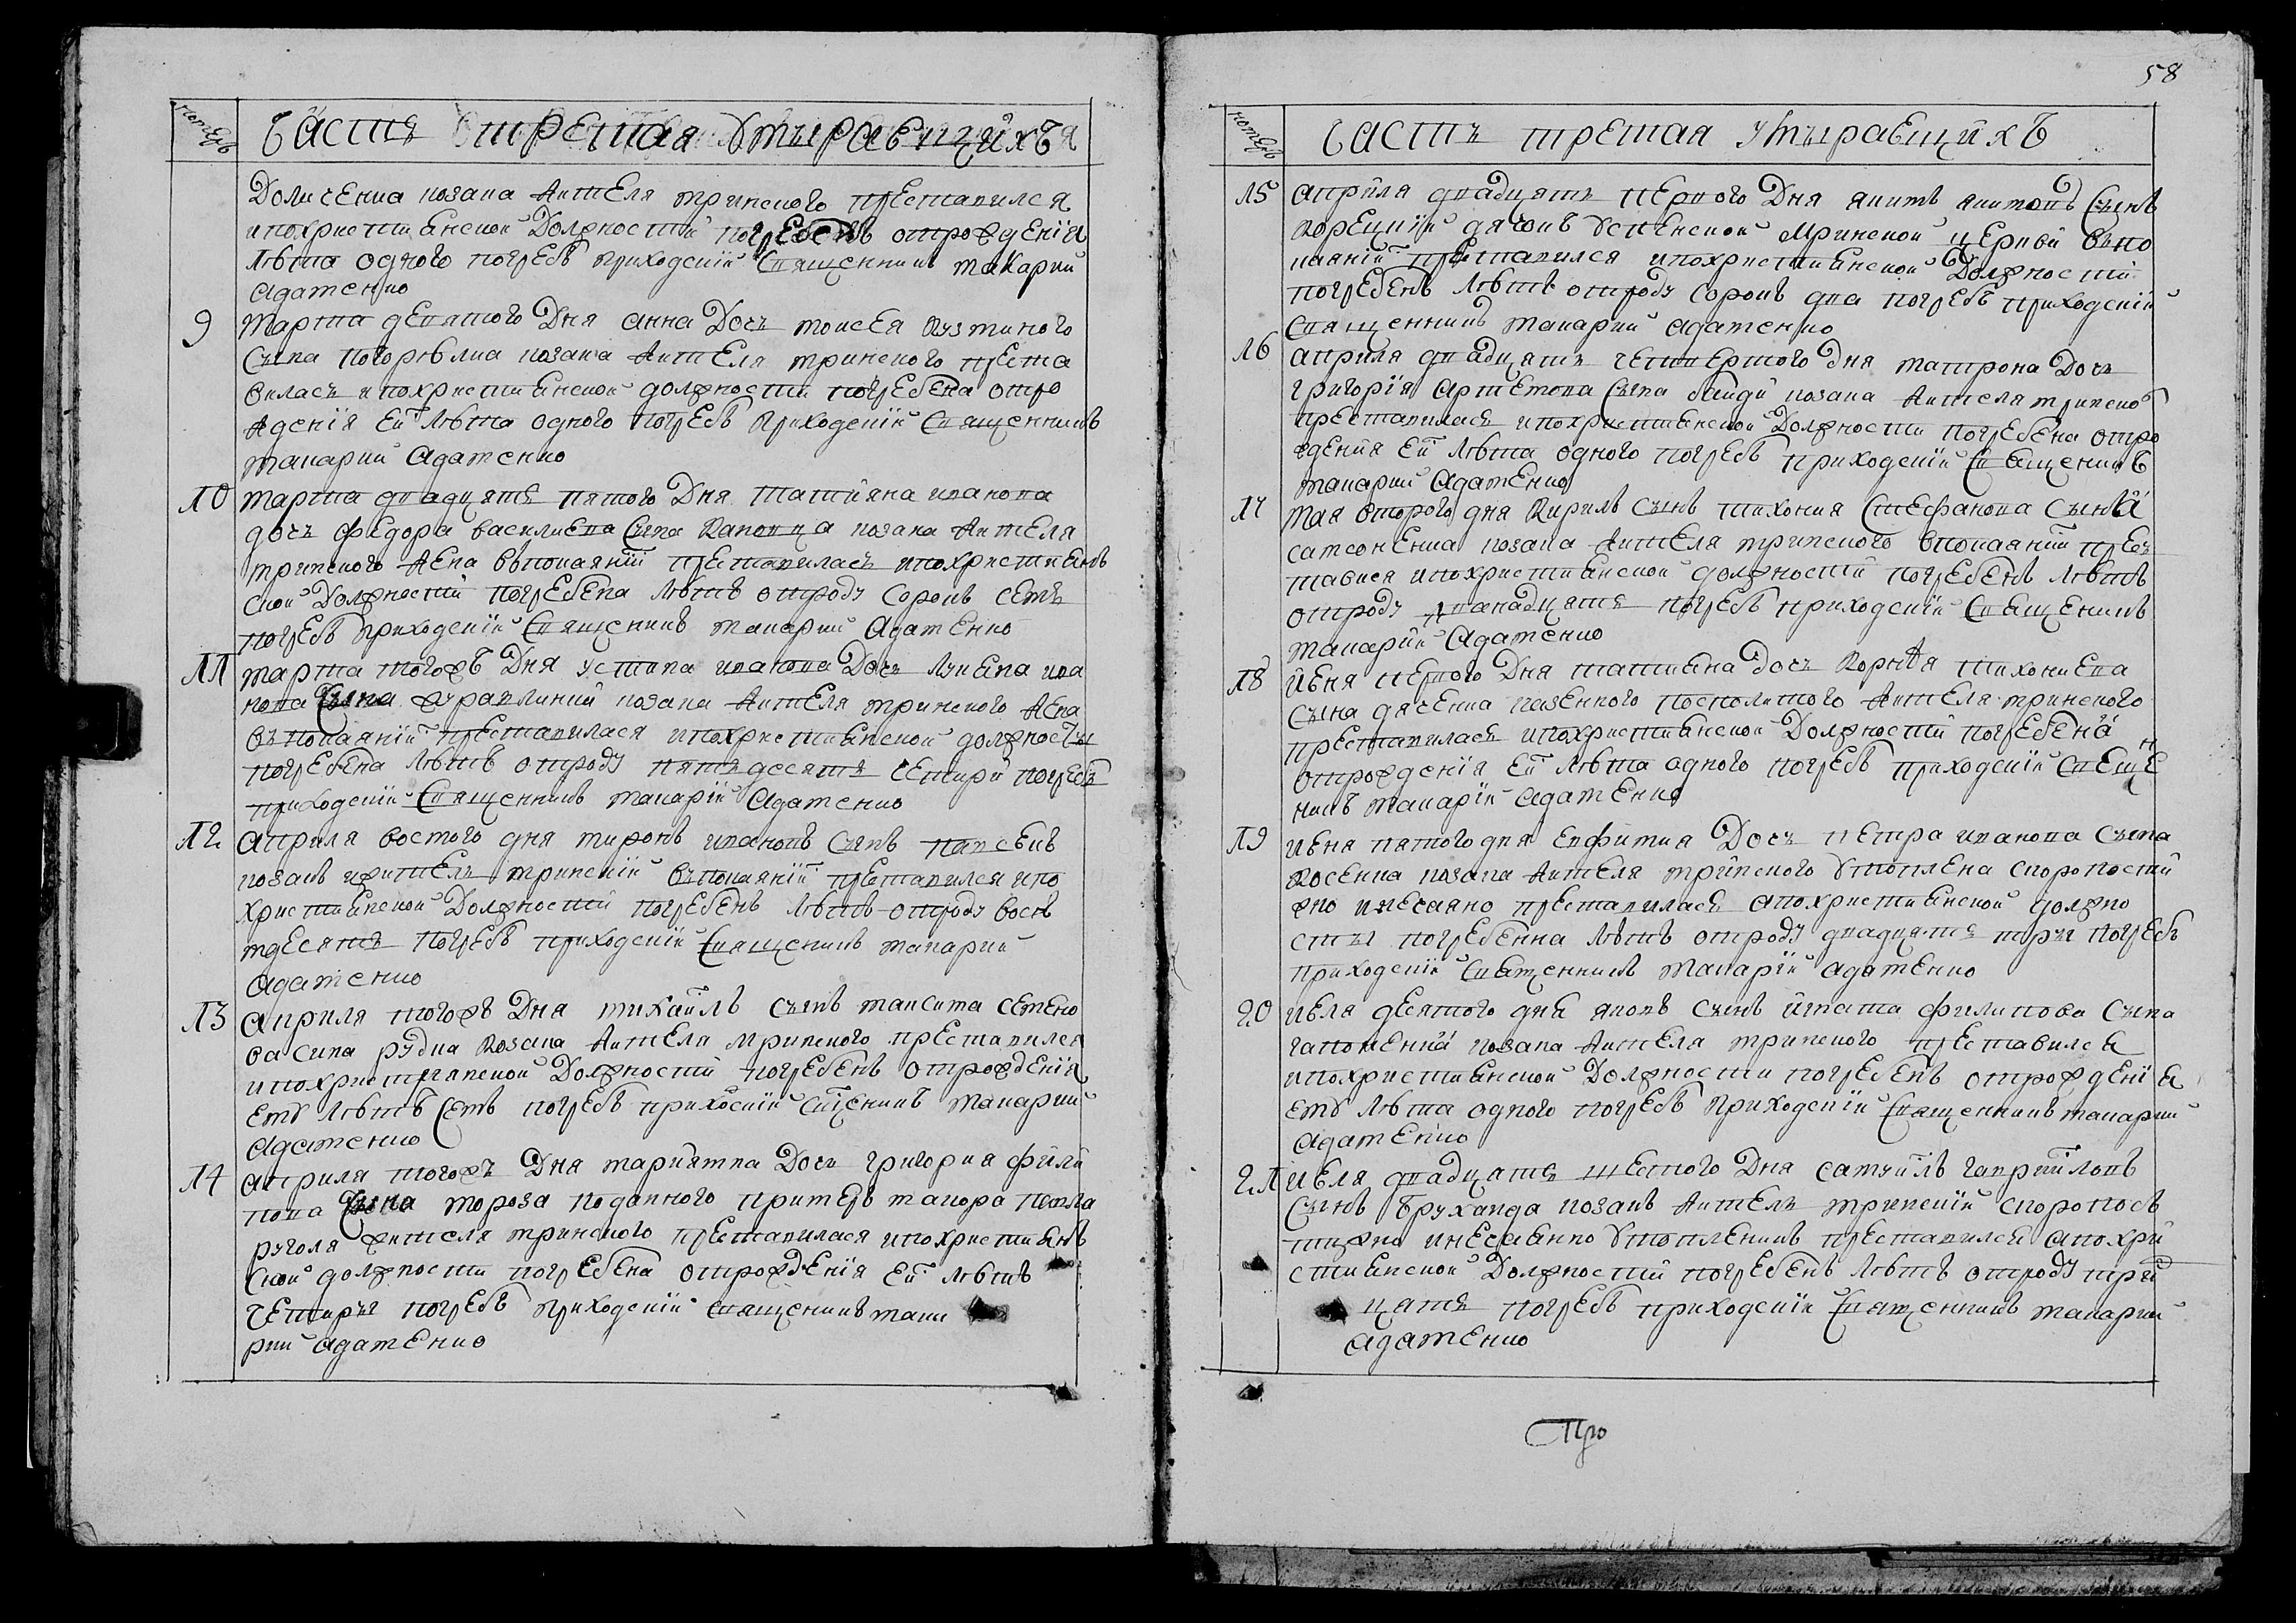 номеръ
Часть третая умыраещихъ
Доличенка козака жителя мринского преставился
и похристианской Должностй погребенъ отрождения
Лѣта одного погребъ приходскій Священникъ Макарий
Адаменко
9 Марта девятого Дня Анна Дочъ Моисея Кузминого
Сына Погорѣлка козака жителя мринского преста
вилась и похристианской должности погребена отро
жденія Ей Лѣта одного погребъ Приходскій Священникъ
Макарий Адаменко
10 Марта двадцять пятого Дня Татияна иванова
дочъ федора василиева Сына Кановца козака жителя
мринского жена въпокаянїи преставилась и похристианъ
ской Должностй погребена Лѣтъ отроду Сорокъ Семъ
погребъ Приходскій Священикъ Макарий Адаменко
11 Марта тогожъ Дня устина иванова Дочъ Лукяна ива
нова Сына журавлиний козака жителя мринского жена
въпокаяній преставилася и похристианской должносты
погребена Лѣтъ отроду пятьдесятъ Четири погребъ
приходскій Священникъ Макарій Адаменко
12 Априля востого дня Миронъ ивановъ Сынъ Папсвикъ
козакъ жителъ мринскій въпокаяній преставился и по
христианской Должностй погребенъ Лѣтъ отроду вось
мдесятъ погребъ приходскій Священикъ Макарий
Адаменко
13 Априля тогожъ Дня Михайлъ Сынъ Максима Семено
ва Сина рудка Козака жителя мринского преставился
и похристиянской Должностй погребенъ отрожденія
ему Лѣтъ Семъ погребъ приходскій Сщеникъ Макарий
Адаменко
14 Априля тогожъ Дня Мариямна Дочъ Григория фили
пова Сына Мороза подданного примеръ Маиора Павла
руголя жителя мринского преставилася и похристианъ
ской должности погребена отрожденія Ей Лѣтъ
Четиры погребъ приходскій Священикъ Мака
рий Адаменко
58
номеръ
Частъ третая умыраещихъ
15 Априля двадцять первого Дня якимъ якимовъ Сынъ
Корецкій дячокъ успенской Мринской церкви въпо
каяній преставился и похристианской Должностй
погребенъ Лѣтъ отроду Сорокъ два погребъ приходскій
Священникъ Макарий Адаменко
16 Априля двадцять четвертого дня Матрона Дочъ
григорія Артемова Сына байди козака жителя мринског
преставилася и похристианской Должности погребена отро
ждения Ей Лѣта одного погребъ приходскій Священикъ
Макарий Адаменко
17 Мая второго дня Кирилъ Сынъ тихония Стефанова Сына
самсоненка козака жителя мринского впокаяній прес
тавися и похристианской должностй погребенъ Лѣтъ
отроду дванадцять погребъ приходскій Священикъ
Макарий Адаменко
18 Июня первого Дня татияна дочъ Корнѣя тихониева
Сына дяченка казенного посполитого жителя мринского
преставилась и похристианской Должностй погребена
отрожденія Ей Лѣта одного погребъ приходскій Свеще
никъ Макарій Адаменко
19 Июня пятого дня Евфимия Дочъ Петра иванова Сына
Косенка козака жителя мринского утоплена скоропостй
жно и нечаяно преставилася а похристианской должно
сты погребенна Лѣтъ отроду двадцять тры погребъ
приходскій Священникъ Макарій Адаменко
20 Июля десятого дня яковъ Сынъ игната филипова Сына
гапоненка козака жителя мринского преставился
и похристианской Должности погребенъ отрожденія
ему Лѣта одного погребъ Приходскій Священникъ Макарий
Адаменко
21 Июля двадцять шестого Дня Самуилъ гаврииловъ
Сынъ Бруханда козакъ жителъ мринскій скоропос
тижно и нечаянно утопленикъ преставился а похри
стианской Должностй погребенъ Лѣтъ отроду трид
цать погребъ приходскій Священникъ Макарий
Адаменко
Про